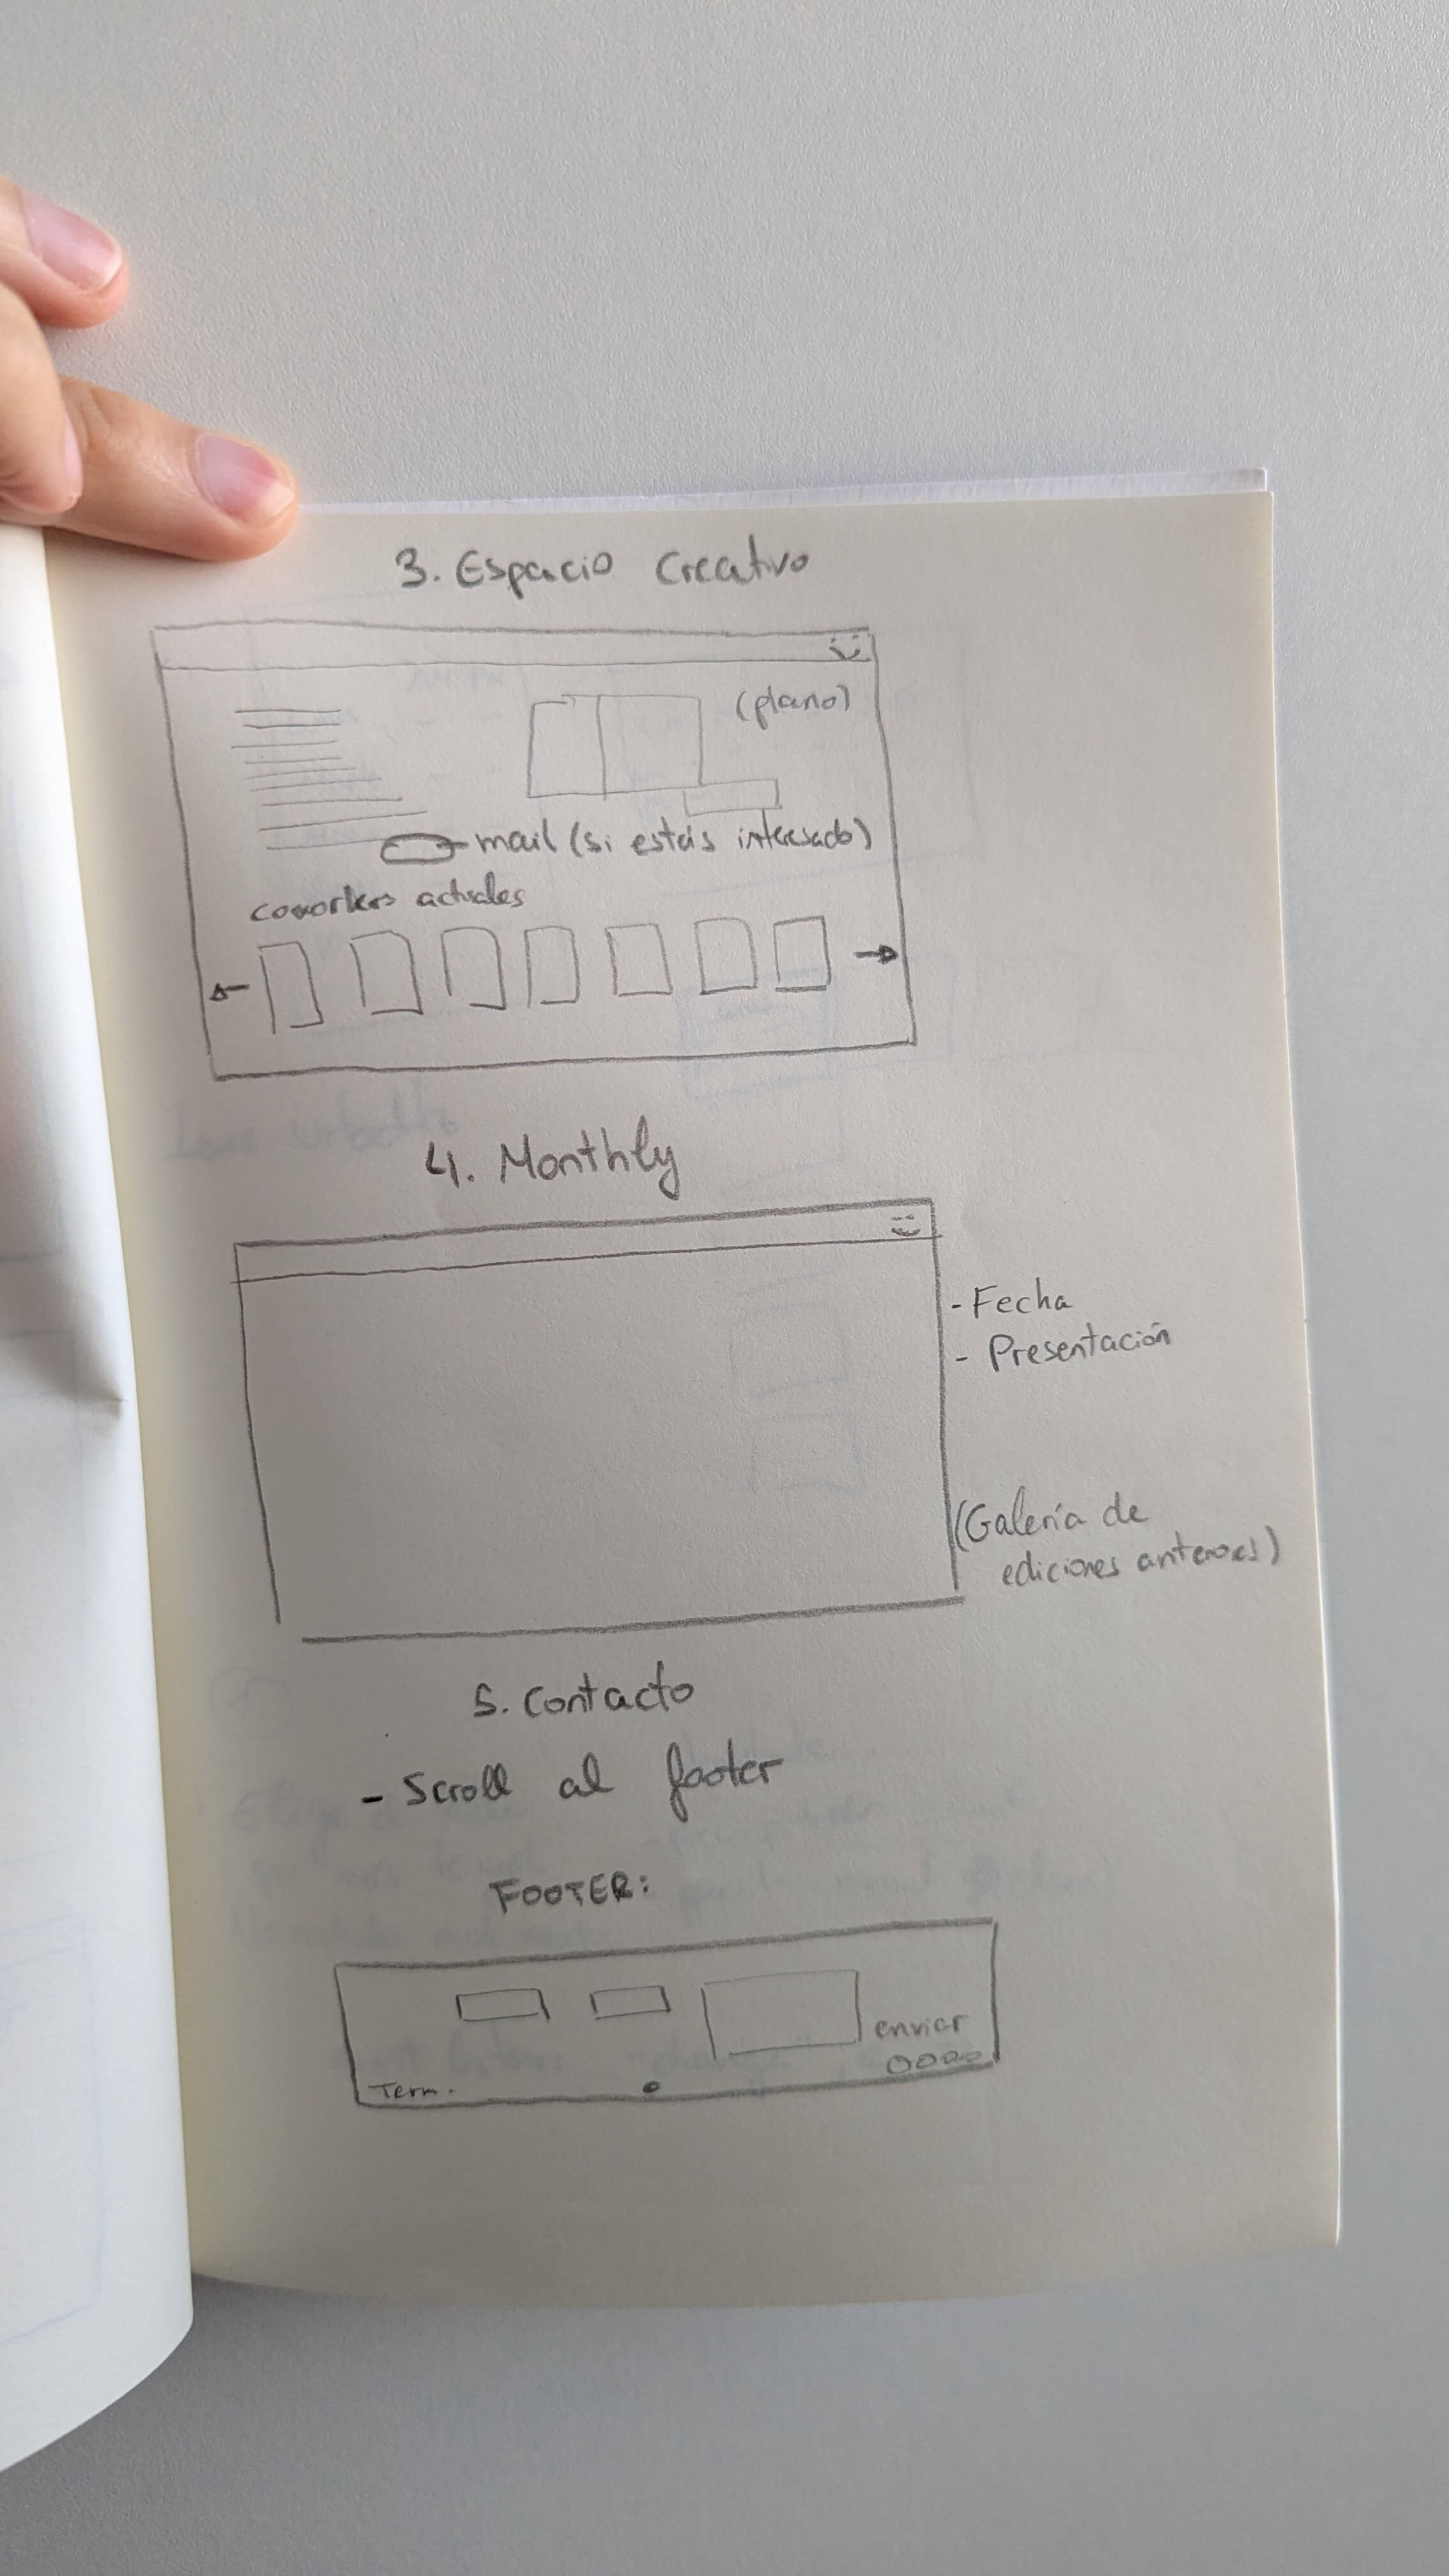 3. Espacio Creativo
(plano)
mail (si estás interesado)
coworkers actuales
4. Monthly
- Fecha
- Presentación
(Galería de
ediciones anteriores)
5. Contacto
- Scroll al footer
FOOTER:
enviar
Term.